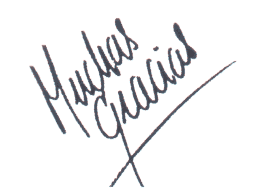 Muchas
Gracias